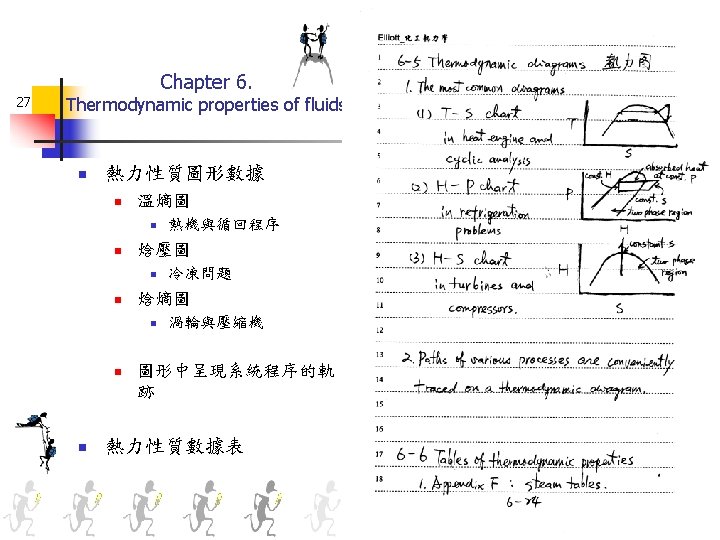 27
Chapter 6.
Thermodynamic properties of fluids
熱力性質圖形數據
溫熵圖
熱機與循回程序
焓壓圖
冷凍問題
焓熵圖
渦輪與壓縮機
圖形中呈現系統程序的軌
跡
熱力性質數據表
Elliott_化工熱力學
1 6-5 Thermodynamic diagrams 熱力圖
2 1. The most common diagrams
3 (1) T-S chart
4 in heat engine and
5 cyclic analysis
6 (2) H-P chart
7 in refrigeration
8 problems
9 (3) H-S chart
10 in turbines and
11 compressors.
12
13 2. Paths of various processes are conveniently
14 traced on a thermodynamic diagram.
15
16
17 6-6 Tables of thermodynamic properties
18 1. Appendix F : steam tables.
6-24
T
S
absorbed heat
at const. P
const. H
P
const. S
two phase region
H
constant S
two phase
region
H
S